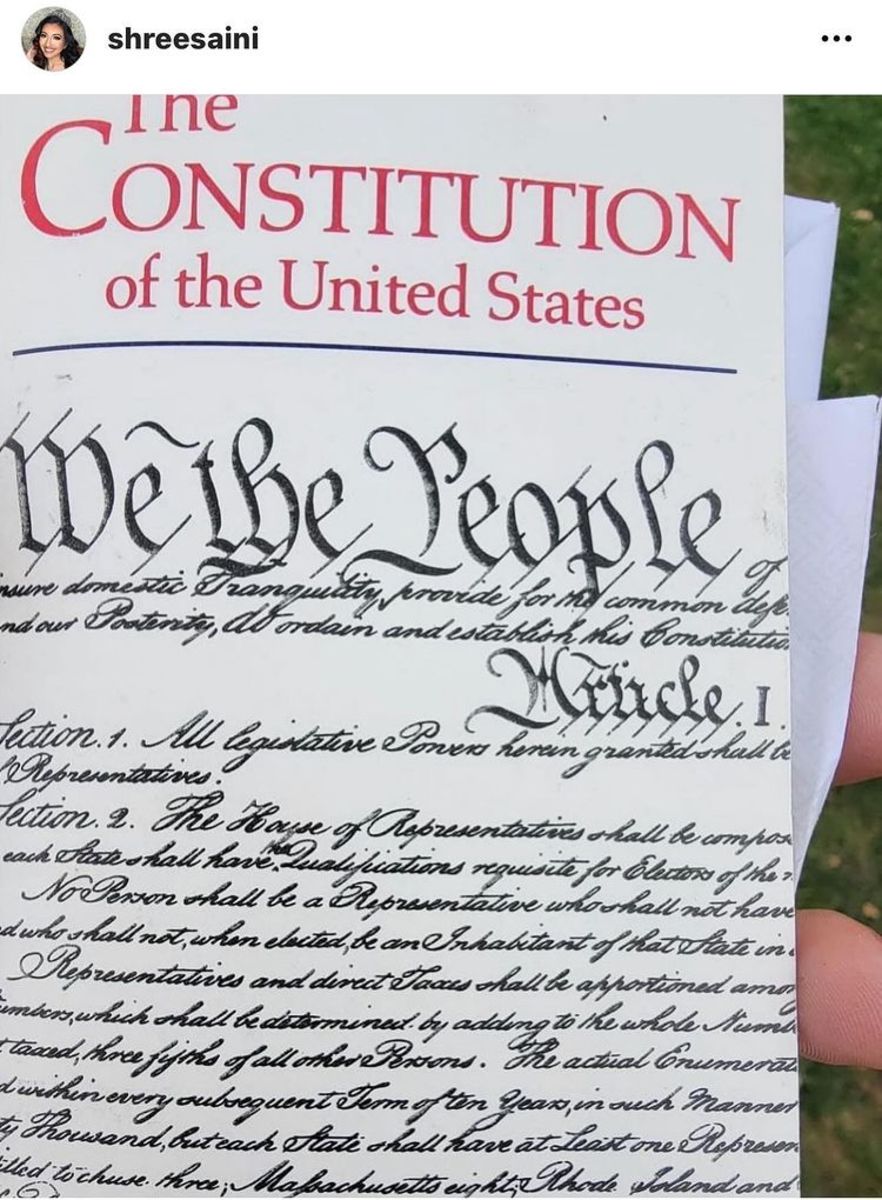 shreesaini
The
CONSTITUTION
of the United States
We the People of
nsure domestic Tranquility, provide for the common defe
nd our Posterity, do ordain and establish this Constitutio
Article. I.
Section. 1. All legislative Powers herein granted shall be
Representatives.
Section. 2. The House of Representatives shall be compos
each State shall have the Qualifications requisite for Electors of the
No Person shall be a Representative who shall not have
d who shall not, when elected, be an Inhabitant of that State in
Representatives and direct Taxes shall be apportioned amon
umbers, which shall be determined by adding to the whole Numb
taxed, three fifths of all other Persons. The actual Enumerati
d within every subsequent Term of ten Years, in such Manner
ty Thousand, but each State shall have at Least one Represen
itled to chuse three, Massachusetts eight, Rhode Island and